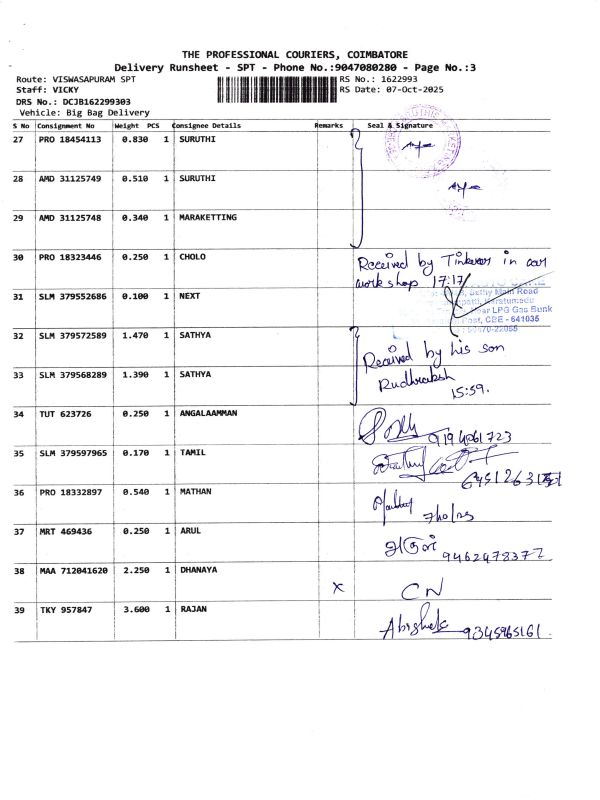 THE PROFESSIONAL COURIERS, COIMBATORE
Delivery Runsheet - SPT - Phone No.:9047080280 - Page No.:3
Route: VISWASAPURAM SPT RS No.: 1622993
Staff: VICKY RS Date: 07-Oct-2025
DRS No.: DCJB162299303
Vehicle: Big Bag Delivery
S No Consignment No Weight PCS Consignee Details Remarks Seal & Signature
27 PRO 18454113 0.830 1 SURUTHI
28 AMD 31125749 0.510 1 SURUTHI
29 AMD 31125748 0.340 1 MARAKETTING
30 PRO 18323446 0.250 1 CHOLO Received by in car
workshop 17:17
31 SLM 379552686 0.100 1 NEXT
Sathy Main Road
LPG Gas Bunk
CBE - 641035
32 SLM 379572589 1.470 1 SATHYA Received by his son
33 SLM 379568289 1.390 1 SATHYA Rudhraksh
15:59.
34 TUT 623726 0.250 1 ANGALAAMMAN
35 SLM 379597965 0.170 1 TAMIL
36 PRO 18332897 0.540 1 MATHAN
37 MRT 469436 0.250 1 ARUL அருள்
38 MAA 712041620 2.250 1 DHANAYA x CN
39 TKY 957847 3.600 1 RAJAN Abishek 9345965161